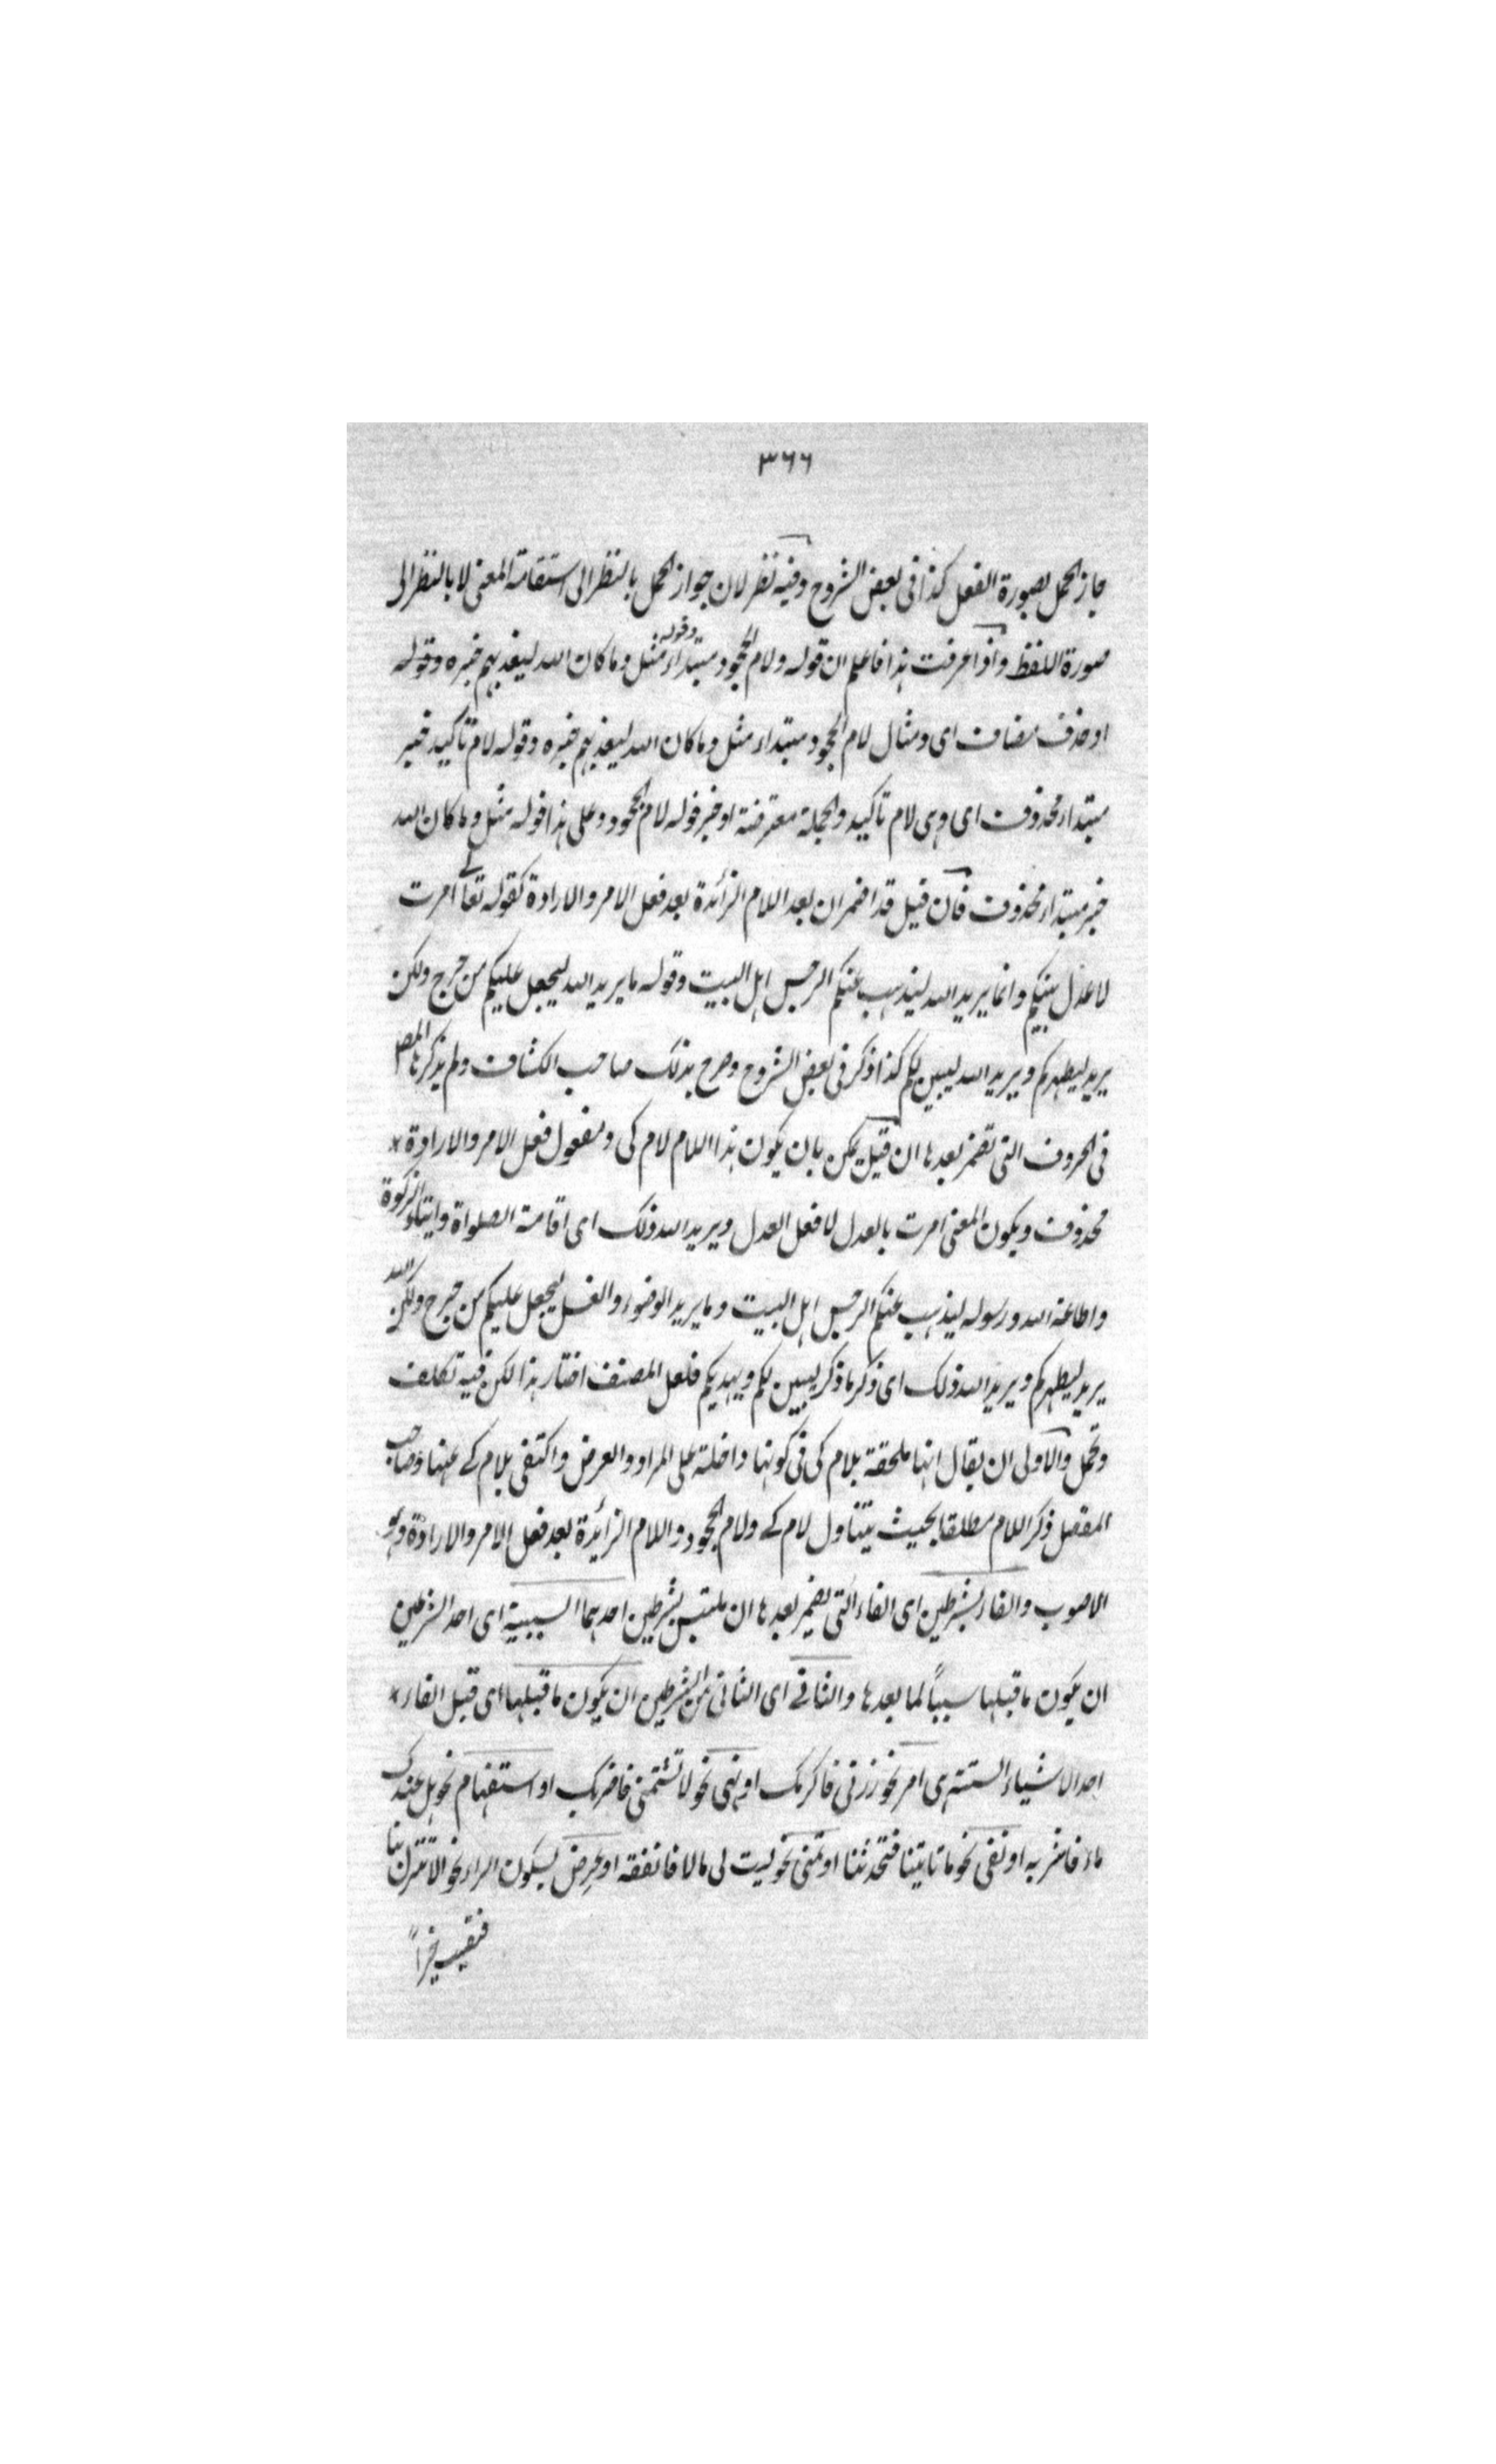 ٣٦٦
جاز الحمل بصورة الفعل كذا فى بعض الشروح وفيه نظر لان جواز الحمل بالنظر الى استقامة المعنى لا بالنظر الى
صورة اللفظ واذا عرفت هذا فاعلم ان قوله ولام الجحود مبتداء وقوله مثل وما كان الله ليعذبهم خبره وقوله
او حذف مضاف اى ومثال لام الجحود مبتداء مثل وما كان الله ليعذبهم خبره وقوله لام تاكيد خبر
مبتداء محذوف اى وهى لام تاكيد والجملة معترضة او خبر قوله لام الجحود وعلى هذا قوله مثل وما كان الله
خبر مبتداء محذوف فان قيل قد اضمر ان بعد اللام الزائدة بعد فعل الامر والارادة كقوله تعالى امرت
لاعدل بينكم وانما يريد الله ليذهب عنكم الرجس اهل البيت وقوله ما يريد الله ليجعل عليكم من حرج ولكن
يريد ليطهركم ويريد الله ليبين لكم كذا ذكر فى بعض الشروح وصرح بذلك صاحب الكشاف ولم يذكرها المص
فى الحروف التى تضمر بعدها ان قيل يمكن بان يكون هذا اللام لام كى ومفعول فعل الامر والارادة *
محذوف ويكون المعنى امرت بالعدل لا فعل العدل ويريد الله ذلك اى اقامة الصلواة وايتاء الزكوة
واطاعة الله ورسوله ليذهب عنكم الرجس اهل البيت وما يريد الوضوء والغسل ليجعل عليكم من حرج ولكن الله
يريد ليطهركم ويريد الله ذلك اى ذكر ما ذكر ليبين لكم ويهديكم فلعل المصنف اختار هذا لكن فيه تكلف
وتحمل والاولى ان يقال انها ملحقة بلام كى فى كونها داخلة على المراد والغرض واكتفى بلام كے عنها وصاحب
المفصل ذكر اللام مطلقا بحيث يتناول لام كے ولام الجحود واللام الزائدة بعد فعل الامر والارادة وهو
الاصوب والفاء بشرطين اى الفاء التى يضمر بعدها ان ملتبس بشرطين احدهما السببية اى احد الشرطين
ان يكون ما قبلها سببًا لما بعدها والثانے اى الثانى من الشرطين ان يكون ما قبلها اى قبل الفاء *
احد الاشياء الستة هى امر نحو زرنى فاكرمك او نهى نحو لا تشتمنى فاضربك او استفهام نحو هل عندك
ماء فاشربه او نفى نحو ما تاتينا فتحدثنا او تمنى نحو ليت لى مالا فانفقه او عرض بسكون الراء نحو الا تنزل بنا
فتصيب خيراً